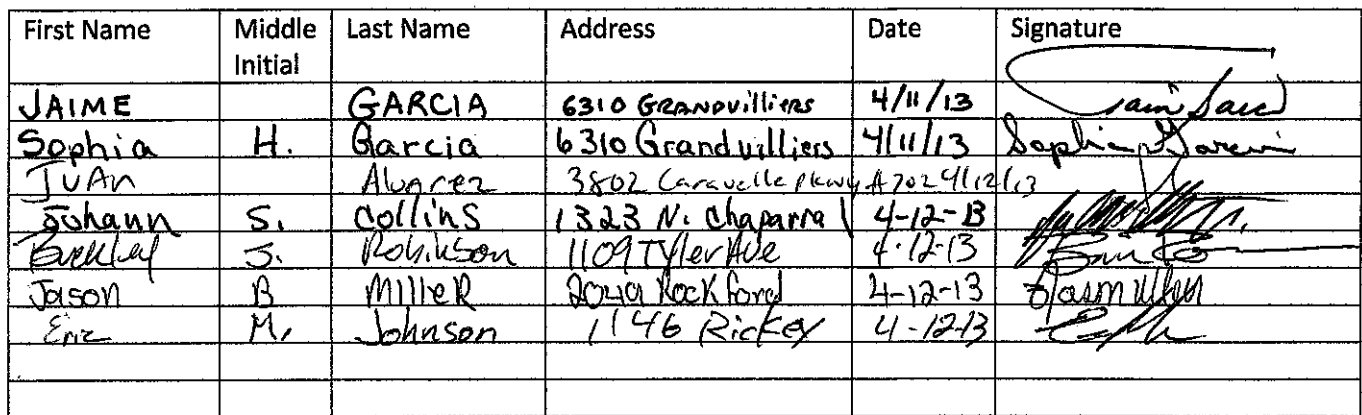 First Name Middle Initial Last Name Address Date Signature
JAIME GARCIA 6310 GRANDVilliers 4/11/13
Sophia H. Garcia 6310 Grandvilliers 4/11/13 Sophia H Garcia
JUAn Alvarez 3802 Caravelle Pkwy #702 4/12/13
Johann S. Collins 1323 N. Chaparral 4-12-13
J. Robinson 1109 Tyler Ave 4-12-13
Jason B MilleR 2049 Rockford 4-12-13
Eric M. Johnson 1146 Rickey 4-12-13